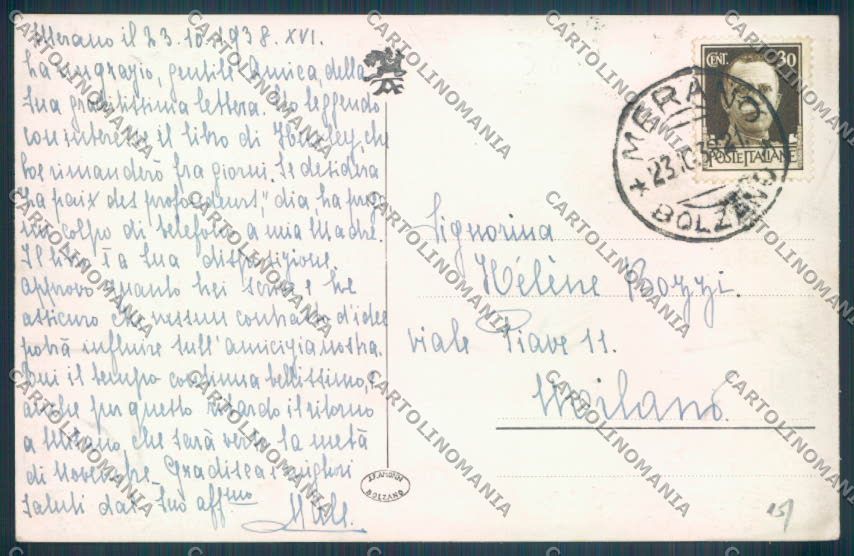 Merano il 23.10.1938.XVI.
La ringrazio, gentile Amica, della
Sua graditissima lettera. Sto leggendo
con interesse il libro di Huxley, che
rimanderò fra giorni. Se desidera
"La paix des profondeurs",
un colpo di telefono a mia Madre.
Il libro è a Sua disposizione.
Approvo quanto Lei scrive e La
assicuro che nessun contrasto d'idee
potrà influire sull'amicizia nostra.
Qui il tempo continua bellissimo,
anche per questo ritardo il ritorno
a Milano che sarà verso la metà
di Novembre. Gradisca i migliori
saluti dal Suo aff.mo
CENT. 30
POSTE ITALIANE
MERANO
23.10.38
BOLZANO
Signorina
Hélène Bozzi.
viale Piave 11.
Milano.
BOLZANO
15/
CARTOLINOMANIA